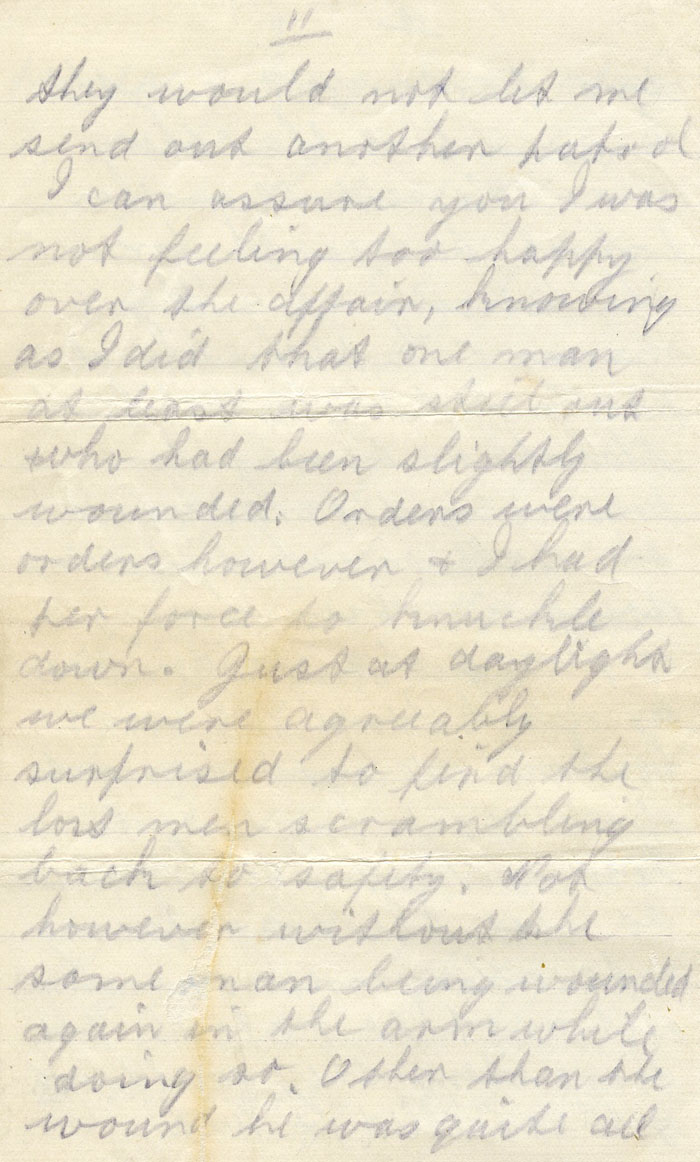 11
they would not let me
send out another patrol
I can assure you I was
not feeling too happy
over the affair, knowing
as I did that one man
at least was still out
& who had been slightly
wounded. Orders were
orders however & I had
per force to knuckle
down. Just at daylight
we were agreeably
surprised to find the
lost men scrambling
back to safety. Not
however without the
same man being wounded
again in the arm while
doing so. Other than the
wound he was quite all